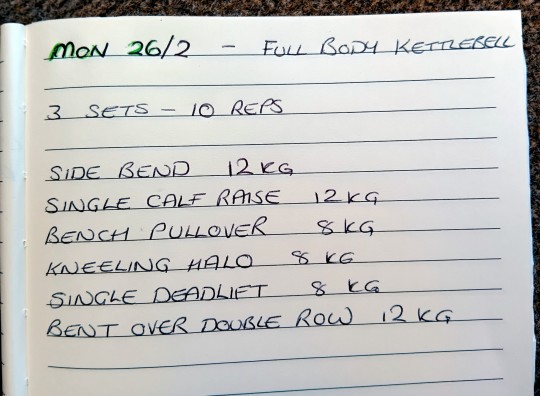 MON 26/2 - FULL BODY KETTLEBELL
3 SETS - 10 REPS
SIDE BEND 12 KG
SINGLE CALF RAISE 12 KG
BENCH PULLOVER 8 KG
KNEELING HALO 8 KG
SINGLE DEADLIFT 8 KG
BENT OVER DOUBLE ROW 12 KG